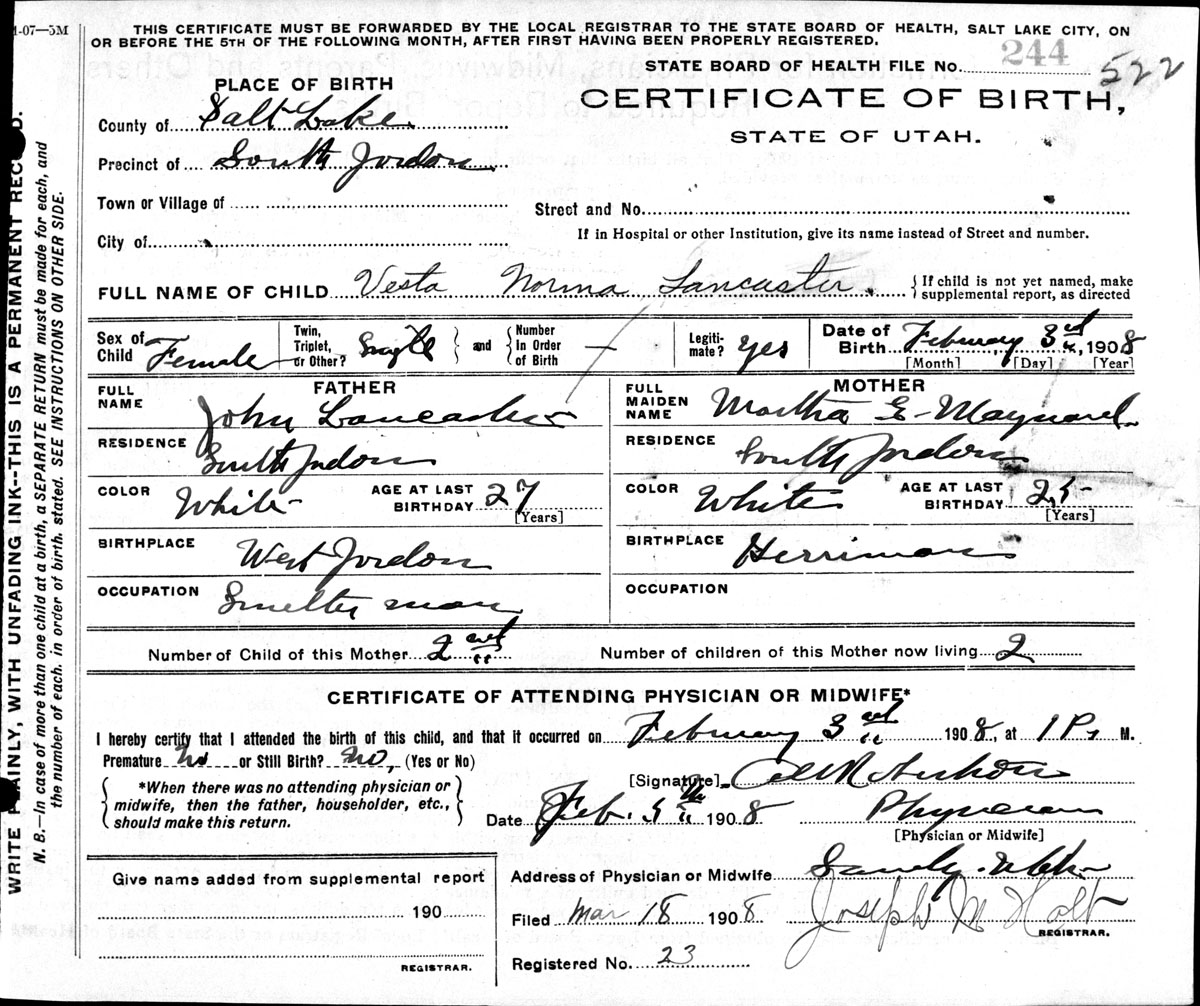 1-07—5M
THIS CERTIFICATE MUST BE FORWARDED BY THE LOCAL REGISTRAR TO THE STATE BOARD OF HEALTH, SALT LAKE CITY, ON
OR BEFORE THE 5TH OF THE FOLLOWING MONTH, AFTER FIRST HAVING BEEN PROPERLY REGISTERED.
STATE BOARD OF HEALTH FILE No. 244 522
PLACE OF BIRTH
CERTIFICATE OF BIRTH,
STATE OF UTAH.
County of Salt Lake
Precinct of South Jordon
Town or Village of
Street and No.
City of
If in Hospital or other Institution, give its name instead of Street and number.
FULL NAME OF CHILD Vesta Norma Lancaster {If child is not yet named, make
supplemental report, as directed
Sex of Child Female Twin, Triplet, or Other? Single and Number In Order of Birth — Legiti-mate? yes Date of Birth February 3rd, 1908
[Month] [Day] [Year]
FATHER
MOTHER
FULL NAME John Lancaster
FULL MAIDEN NAME Martha E Maynard
RESIDENCE South Jordon
RESIDENCE South Jordon
COLOR White AGE AT LAST BIRTHDAY 27
[Years]
COLOR White AGE AT LAST BIRTHDAY 25
[Years]
BIRTHPLACE West Jordon
BIRTHPLACE Herriman
OCCUPATION Smelter man
OCCUPATION
Number of Child of this Mother 2nd Number of children of this Mother now living 2
CERTIFICATE OF ATTENDING PHYSICIAN OR MIDWIFE*
I hereby certify that I attended the birth of this child, and that it occurred on February 3rd 1908, at 1 P. M.
Premature No or Still Birth? No, (Yes or No)
[Signature]
*When there was no attending physician or
midwife, then the father, householder, etc.,
should make this return.
Date Feb. 5th 1908 Physician
[Physician or Midwife]
Give name added from supplemental report
190
REGISTRAR.
Address of Physician or Midwife Sandy Utah
Filed Mar 18 1908 Joseph M Holt
REGISTRAR.
Registered No. 23
WRITE PLAINLY, WITH UNFADING INK--THIS IS A PERMANENT RECORD.
N. B.—In case of more than one child at a birth, a SEPARATE RETURN must be made for each, and
the number of each. in order of birth. stated. SEE INSTRUCTIONS ON OTHER SIDE.